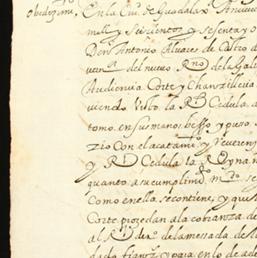 obedecimi.º
En la Ciu.d de Guadalax.ª
mill y Seiscientos y sesenta y o
Don Antonio Alvares de Castro d
del nuevo R.no de la Gali
Audiencia Corte y Chanzilleria
viendo Visto la R.l Cedula
tomo en sus manos besso y puso
Zio con el acatami.to y Reveren
y R.l Cedula la Reyna n
quanto a su cumplim.to m.do se
Como en ella se contiene, y que
Corte procedan a la cobranza de
al R.l der.o de la messada de
dada fianza y para en lo de ade